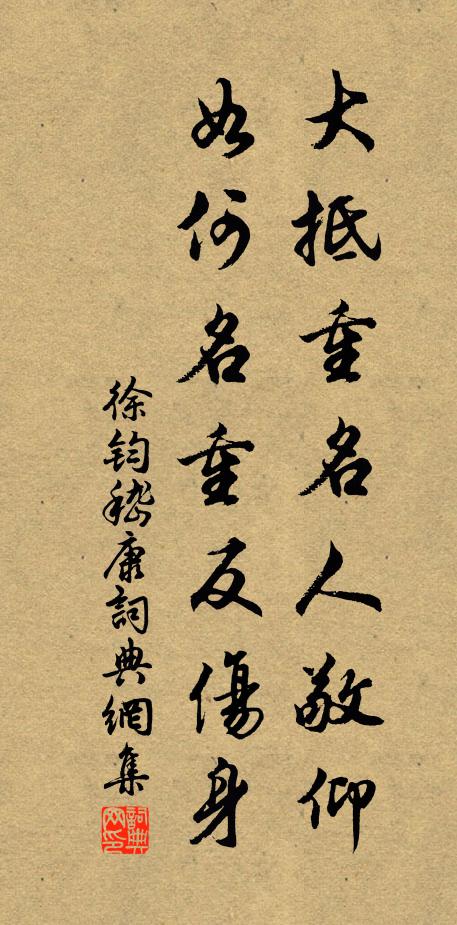 大抵重名人敬仰
如何名重反傷身
徐鈞嵇康詞典網集
詞典
网印